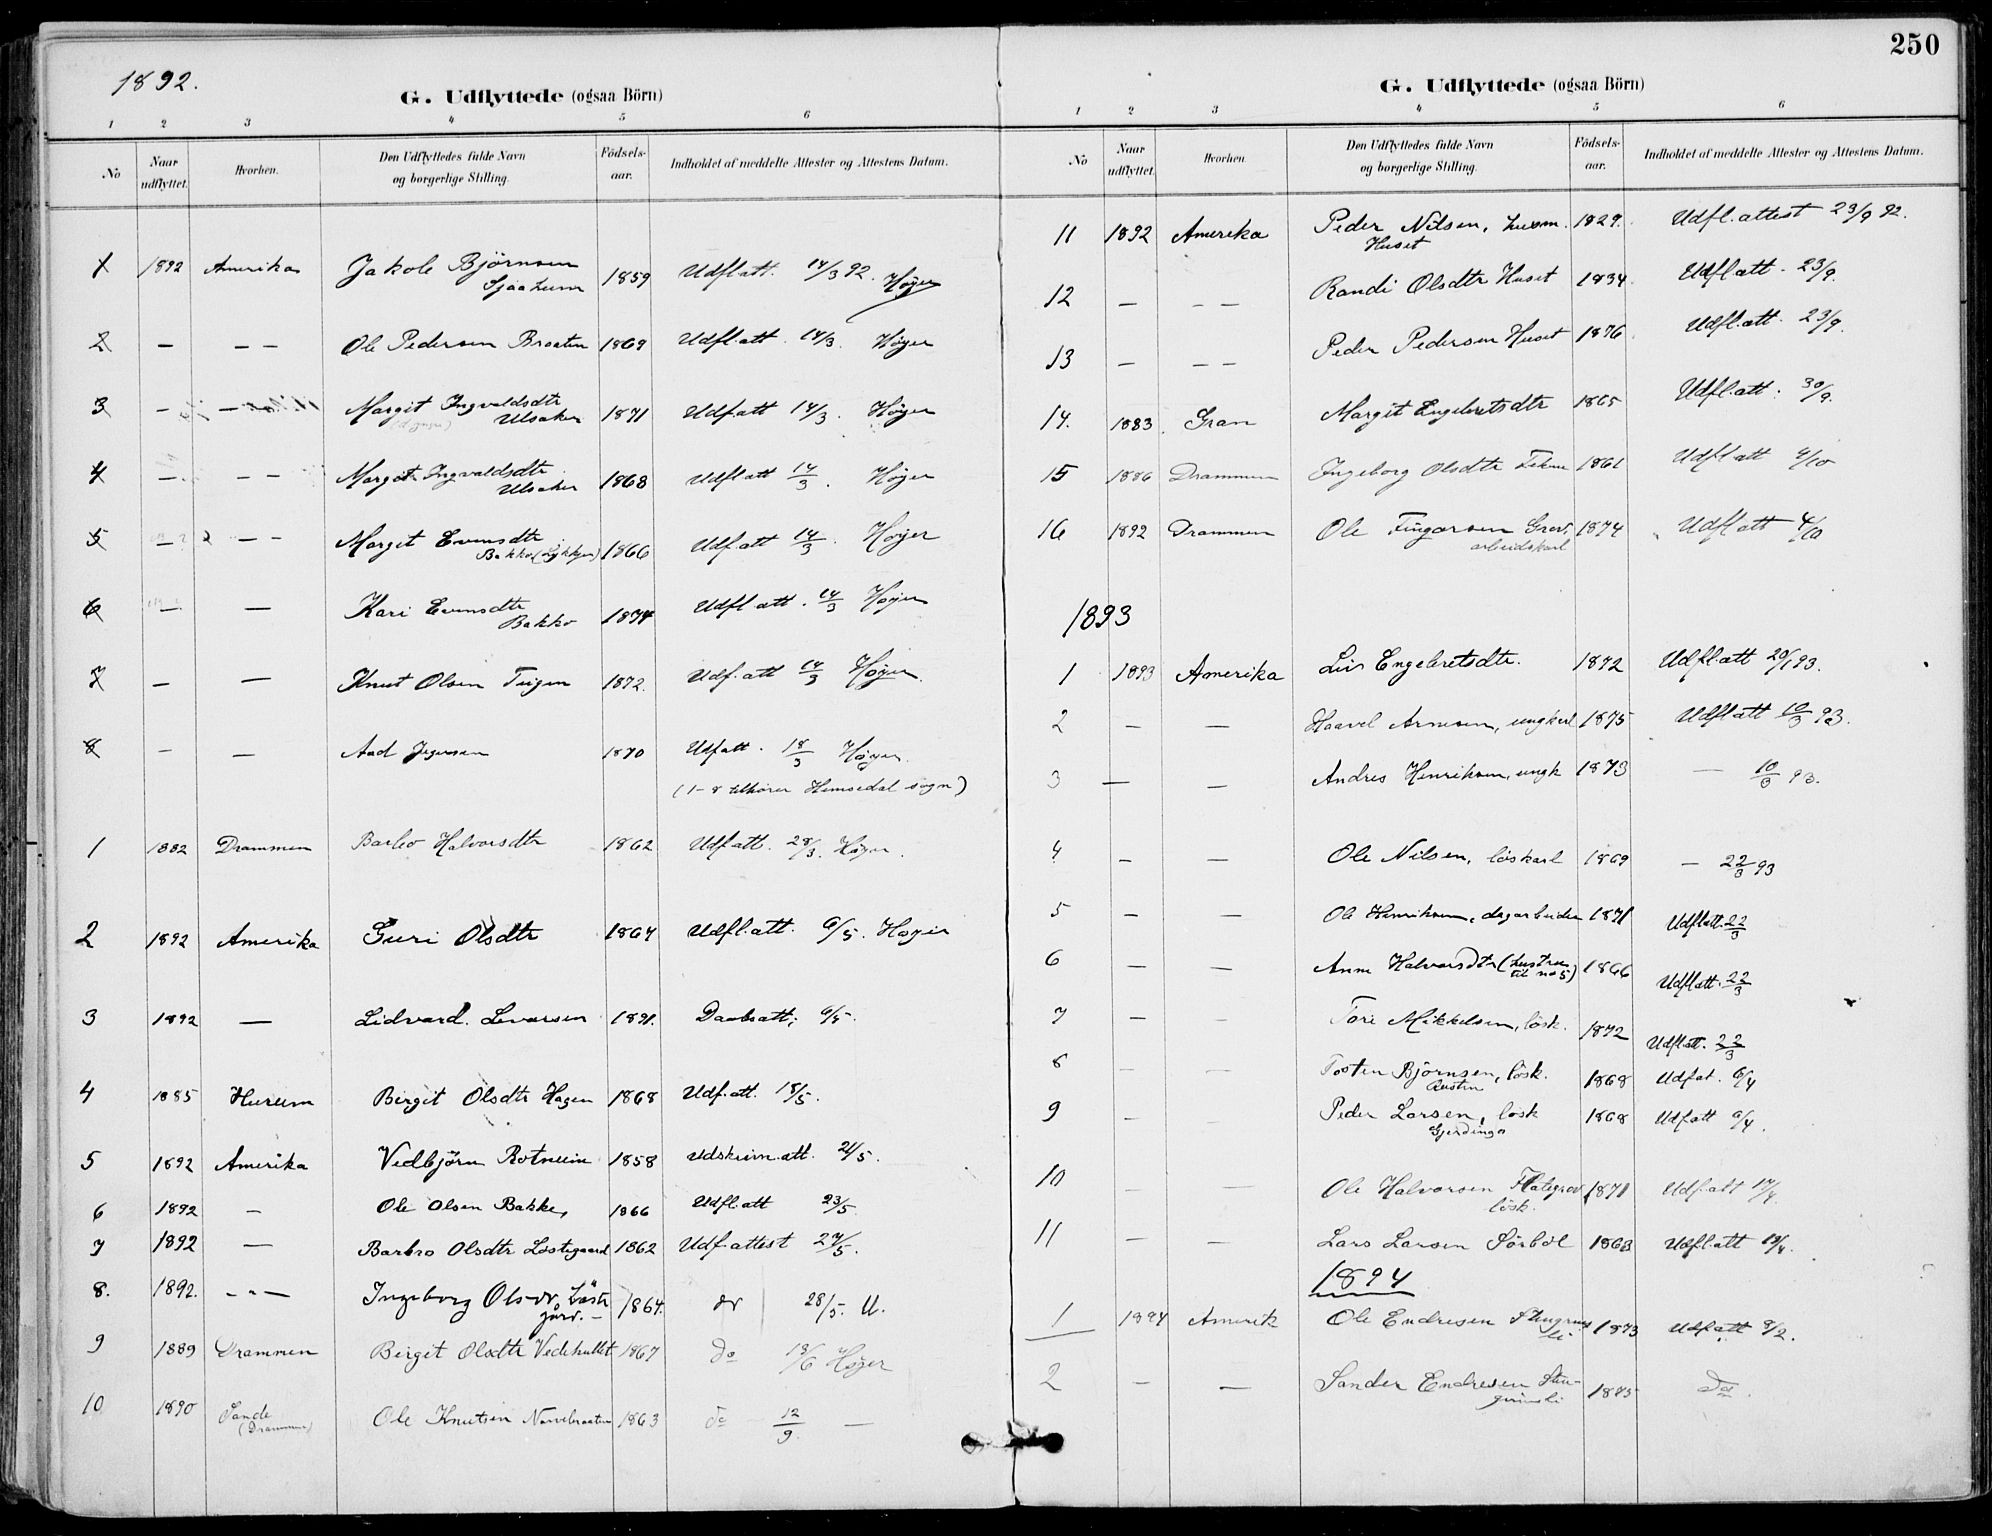 250
1892.
G. Udflyttede (ogsaa Börn)
1 2 3 4 5 6
No
Naar udflyttet.
Hvorhen.
Den Udflyttedes fulde Navn og borgerlige Stilling.
Födsels-aar.
Indholdet af meddelte Attester og Attestens Datum.
1 1892 Amerika Jakob Björnsen 1859 Udfl.att. 14/3 92. Høyer
2 — — — Ole Pedersen Braaten 1869 Udfl att. 14/3. Høyer
3 — — Margit Ingvaldsdtr 1871 Udf.att 14/3. Høyer
Ulsaker
4 — — — Margit Ingvaldsdtr 1868 Udfl att 14/3. Høyer
Ulsaker
5 — — — Margit Evensdtr 1866 Udf.att 14/3. Høyer
Bakko
6 — — Kari Evensdtr 1874 Udfl att. 14/3 Høyer
Bakko
7 — — Knut Olsen Tuigen 1872. Udf.att 14/3 Høyer.
8 — — Aad 1870 Udf.att. 18/3 Høyer.
(1-8 tilhører Hemsedal sogn)
1 1882 Drammen Barbro Halvorsdtr 1862 Udf.att. 28/3. Høyer.
2 1892 Amerika Guri Olsdtr 1864 Udfl.att. 6/5. Høyer
3 1892 — Lidvard. Levorsen 1891. Daabsatt; 6/5.
4 1885 Hurum Birgit Olsdtr Hagen 1868 Udf.att. 18/5.
5 1892 Amerika Vedbjörn Rotneim 1858 Udskrivn.att. 21/5.
6 1892 — Ole Olsen Bakken 1866 Udfl.att 23/5.
7 1892 — Barbro Olsdtr Löstegaard 1862 Udf.attest 27/5.
8. 1892. - " — Ingeborg Olsdr. Löste 1864. do 28/5. U.
gard. —
9 1889 Drammen Birgit Olsdtr Vedehullet 1867 do 18/6 Høyer
10 1890 Sande Ole Knutsen 1863 do 12/9. —
(Drammen)
G. Udflyttede (ogsaa Börn)
1 2 3 4 5 6
No
Naar udflyttet.
Hvorhen.
Den Udflyttedes fulde Navn og borgerlige Stilling.
Födsels-aar.
Indholdet af meddelte Attester og Attestens Datum.
11 1892 Amerika Peder Nilsen, husm. 1829. Udfl.attest 23/9 92.
Huset
12 — — — Randi Olsdtr Huset 1834. Udfl att. 23/9.
13 — — — Peder Pedersen Huset 1876. Udfl.att. 23/9.
14. 1883. Gran Margit Engebretsdtr 1865 Udfl.att: 30/9.
15 1886 Drammen Ingeborg Olsdtr 1861 Udfl att 4/10
16 1892 Drammen Ole Fingarsen Grøv, 1874 Udfl att 4/10
arbeidskarl
1893
1 1893 Amerika Liv Engebretsdtr. 1872 Udfl.att 20/1 93.
2 — — Haavel Arnesen, ungkarl 1875 Udfl att 10/3 93.
3 — — Andres Henriksen, ungk 1873 — 10/3 93.
4 — — Ole Nilsen, löskarl 1869 — 22/3 93
5 — — Ole Henriksen, dagarbeider 1871 Udfl att. 22/3
6 — — Anne Halvorsdtr (hustru 1866 Udfl att. 22/3
til no 5)
7 — — Tore Mikkelsen, lösk. 1872 Udfl.att. 22/3
8 — — Tosten Björnsen, lösk. 1868 Udf.at. 6/4
9 — — Peder Larsen, lösk 1868 Udf.att 6/4.
10 — — Ole Halvorsen 1871 Udf.att 17/4.
lösk.
11 — — Lars Larsen Sörböl 1863 Udfl.att 18/4.
1894
1 1894 Amerik Ole Endresen 1873 Udf.att 8/2.
2 — — Sander Endresen 1875 do.